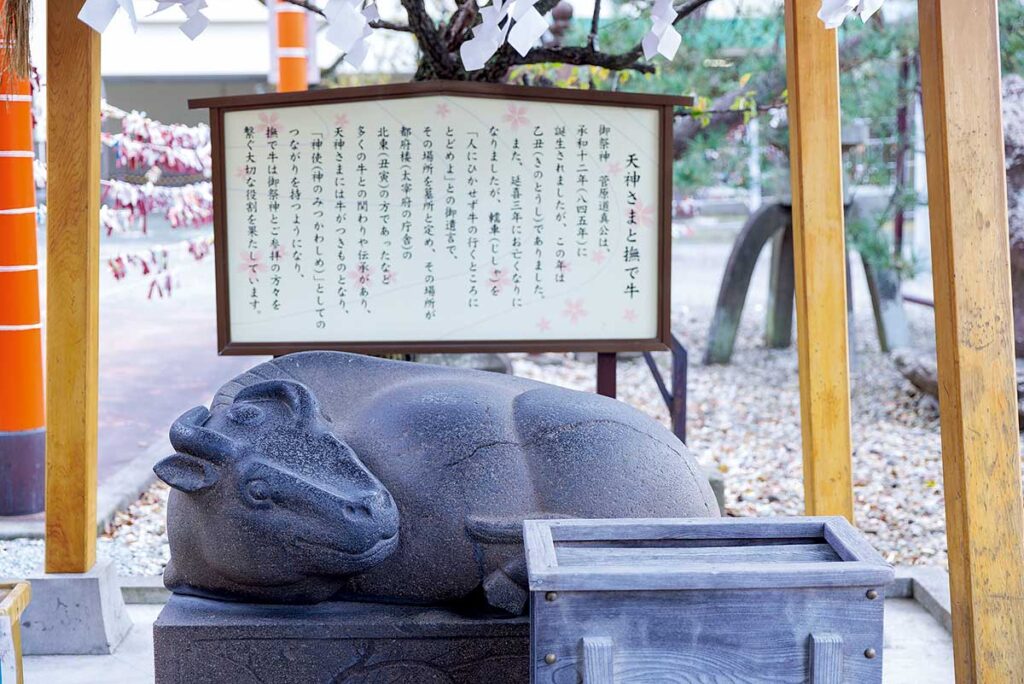 天神さまと撫で牛
御祭神　菅原道真公は、
承和十二年（八四五年）に
誕生されましたが、この年は
乙丑（きのとうし）でありました。
また、延喜三年にお亡くなりに
なりましたが、轜車（じしゃ）を
「人にひかせず牛の行くところに
とどめよ」との御遺言で、
その場所を墓所と定め、その場所が
都府楼（太宰府の庁舎）の
北東（丑寅）の方であったなど
多くの牛との関わりや伝承があり、
天神さまには牛がつきものとなり、
「神使（神のみつかわしめ）」としての
つながりを持つようになり、
撫で牛は御祭神とご参拝の方々を
繋ぐ大切な役割を果たしています。